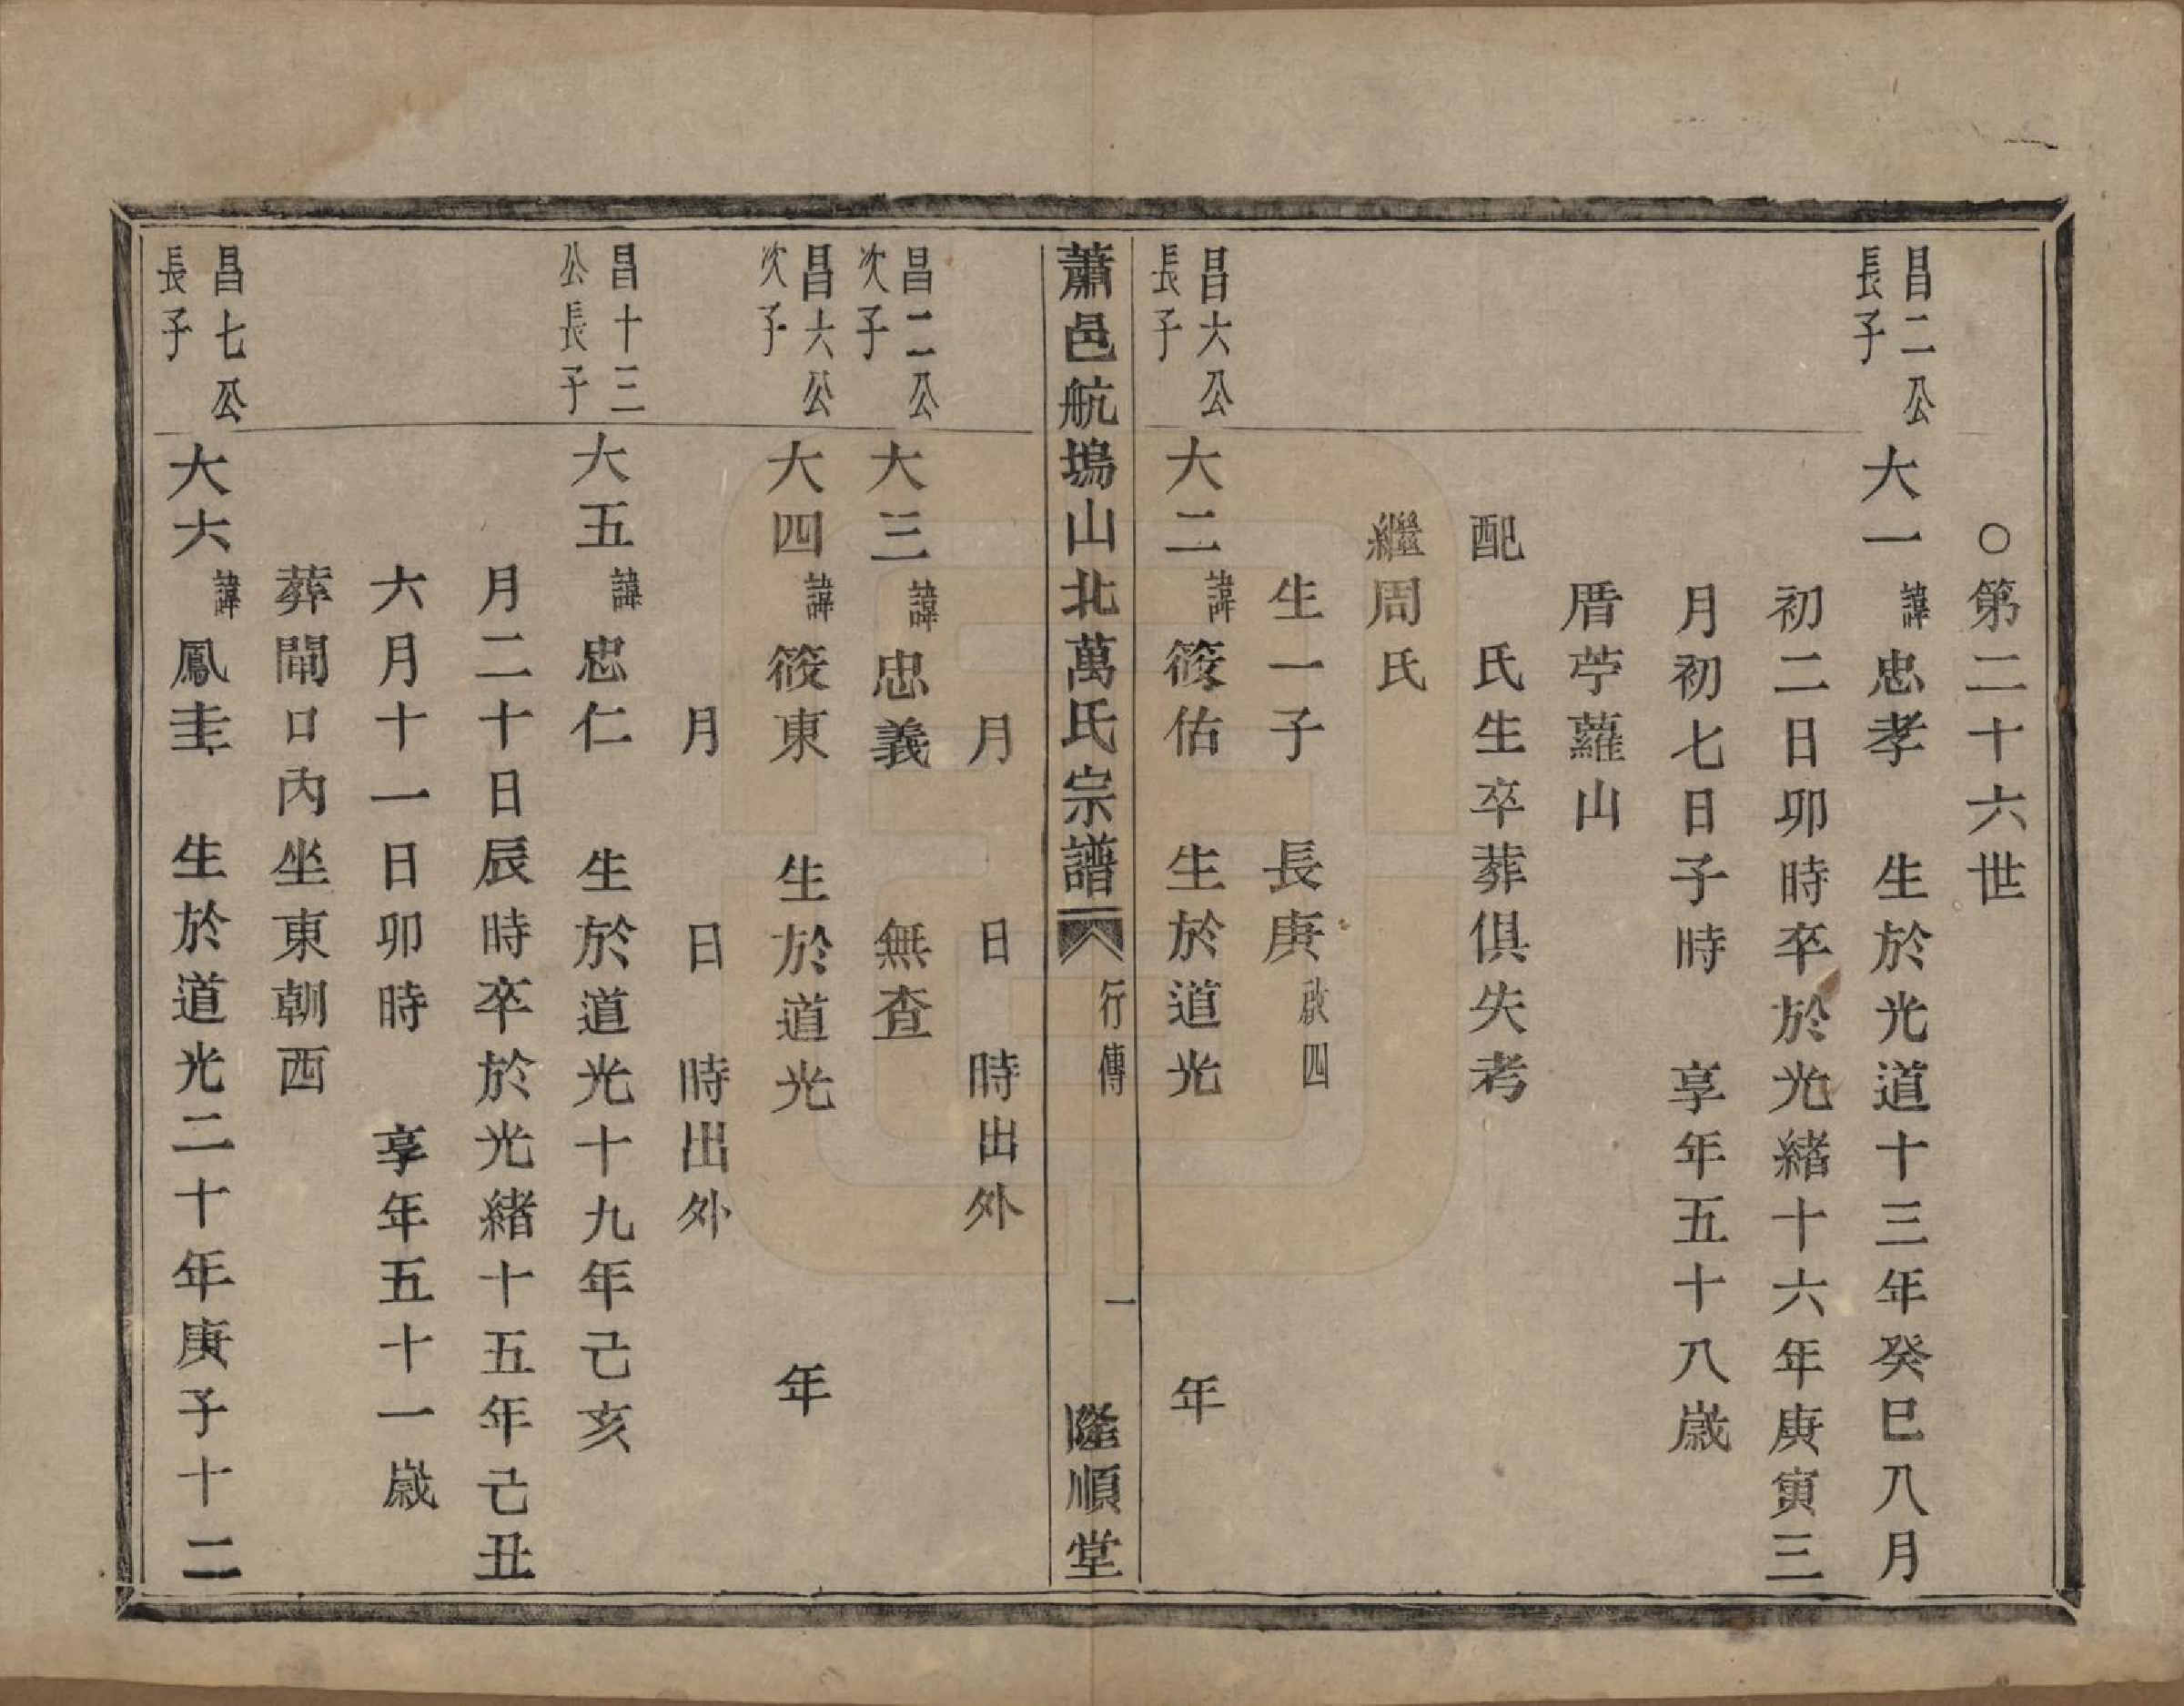 ○第二十六世
昌二公長子
大一諱忠孝　生於光道十三年癸巳八月
初二日卯時卒於光緒十六年庚寅三
月初七日子時　享年五十八歲
厝苧蘿山
配　氏生卒葬俱失考
繼周氏
生一子　長庚啟四
昌六公長子
大二諱筱佑　生於道光　年
蕭邑航塢山北萬氏宗譜　行傳　一　隆順堂
月　日　時出外
昌二公次子
大三諱忠義　無查
昌六公次子
大四諱筱東　生於道光　年
月　日　時出外
昌十三公長子
大五諱忠仁　生於道光十九年己亥
月二十日辰時卒於光緒十五年己丑
六月十一日卯時　享年五十一歲
葬閘口內坐東朝西
昌七公長子
大六諱鳳圭　生於道光二十年庚子十二